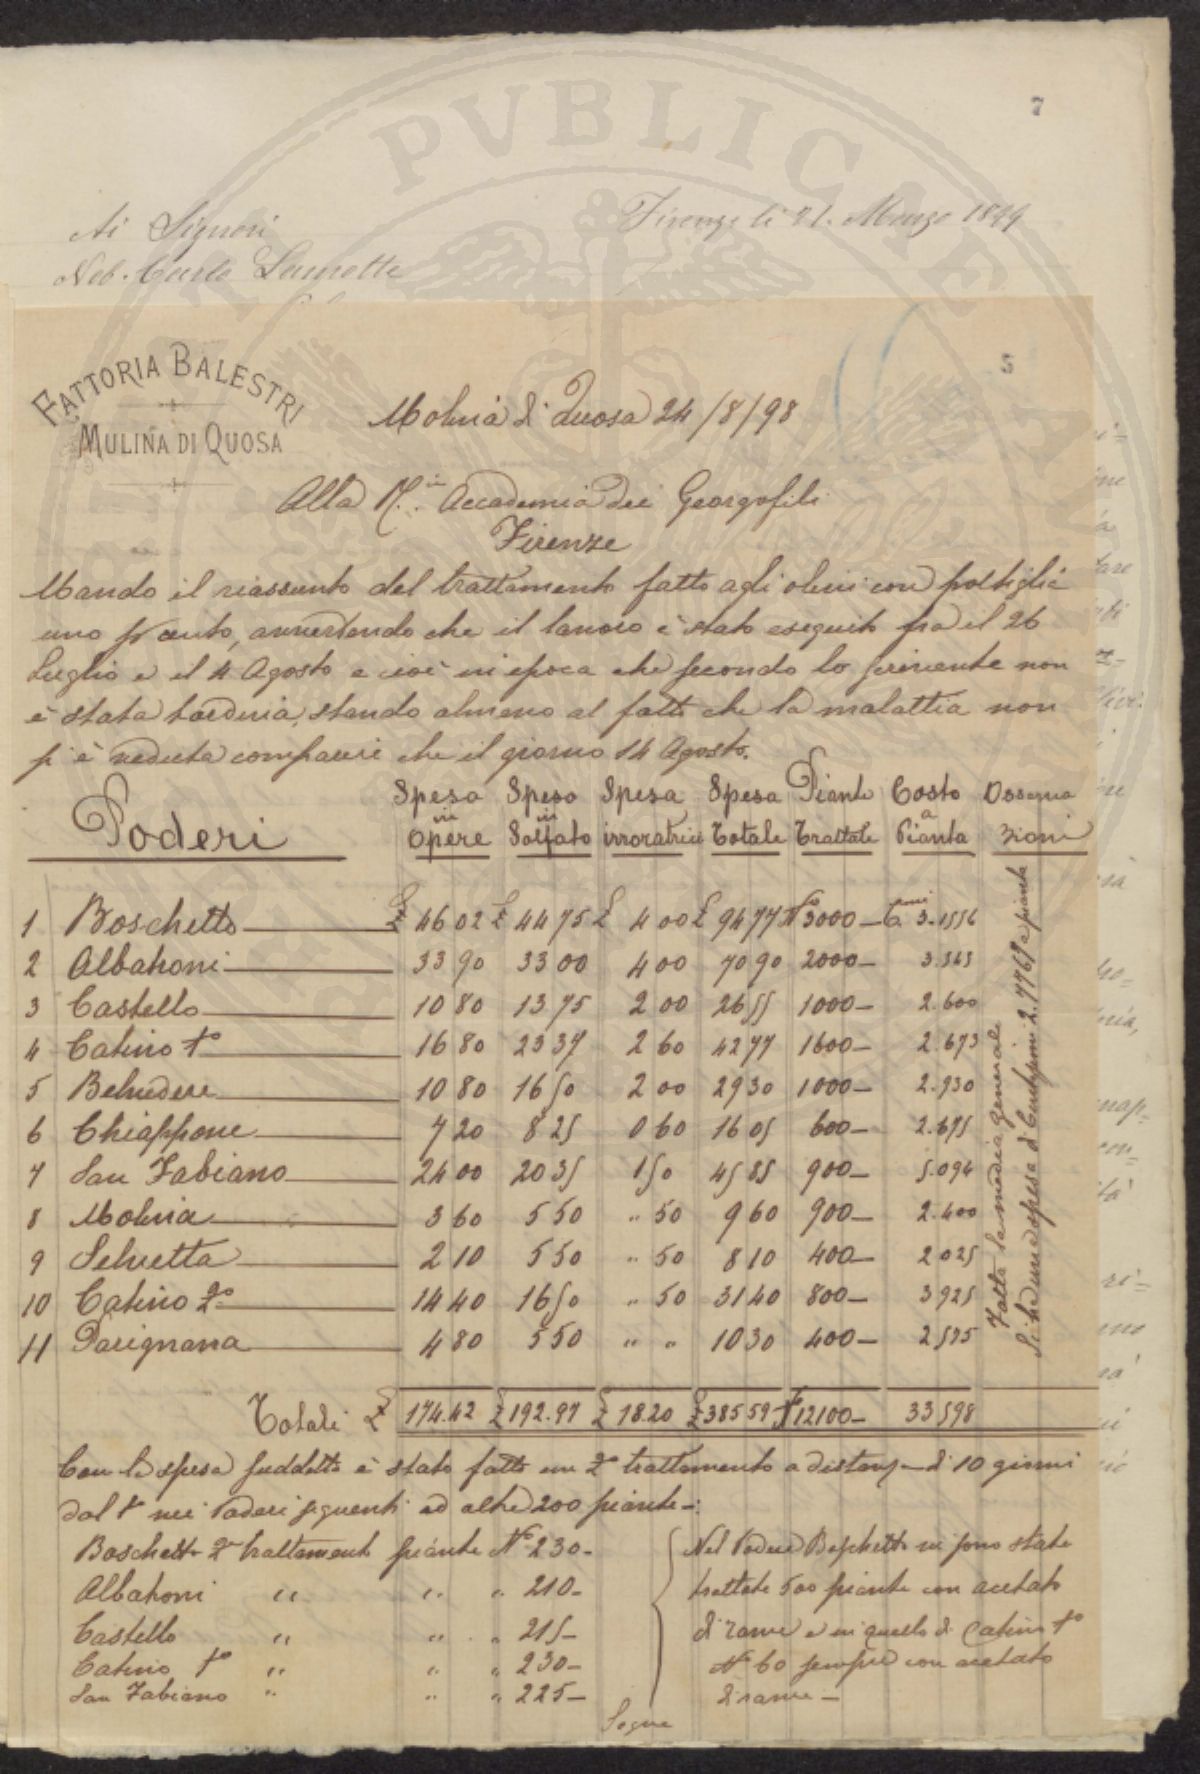 7
Firenze li 21. Marzo 1899
Ai Signori
Nob. Carlo
5
FATTORIA BALESTRI
MULINA DI QUOSA
Molina di Quosa 24/8/98
Alla R. Accademia dei Georgofili
Firenze
Mando il riassunto del trattamento fatto agli olivi con poltiglia
uno p cento, avvertendo che il lavoro è stato eseguito fra il 26
Luglio e il 4 Agosto e cioè in epoca che secondo lo scrivente non
è stata tardiva, stando almeno al fatto che la malattia non
si è veduta comparire che il giorno 14 Agosto.
Poderi Spesa in opere Spesa in Solfato Spesa irroratrici Spesa Totale Piante Trattate Costo a Pianta Osservazioni
1 Boschetto £ 46 02 £ 44 75 £ 4 00 £ 94 77 N° 3000 — C.mi 3.1556
2 Albatroni 33 90 33 00 4 00 70 90 2000 — 3.545
3 Castello 10 80 13 75 2 00 26 55 1000 — 2.600
4 Catino 1° 16 80 23 37 2 60 42 77 1600 — 2.673
5 Belvedere 10 80 16 50 2 00 29 30 1000 — 2.930
6 Chiappone 7 20 8 25 0 60 16 05 600 — 2.675
7 San Fabiano 24 00 20 35 1 50 45 85 900 — 5.094
8 Molina 3 60 5 50 " 50 9 60 900 — 2.400
9 Selvetta 2 10 5 50 " 50 8 10 400 — 2 025
10 Catino 2° 14 40 16 50 " 50 31 40 800 — 3 925
11 Parignana 4 80 5 50 " " 10 30 400 — 2 575
Fatta la media generale
si ha una spesa di Centesimi 2.7769 a pianta
Totali £ 174.42 £ 192.97 £ 18.20 £ 385 59 N° 12100 — 33 598
Con la spesa suddetta è stato fatto un 2° trattamento a distanza di 10 giorni
dal 1° nei Poderi seguenti ed altre 200 piante —:
Boschetto 2° trattamento piante N° 230 —
Albatroni " " " 210 —
Castello " " " 215 —
Catino 1° " " " 230 —
San Fabiano " " " 225 —
Nel Podere Boschetto vi sono state
trattate 500 piante con acetato
di rame e in quello di Catino 1°
N° 60 sempre con acetato
di rame —
Segue